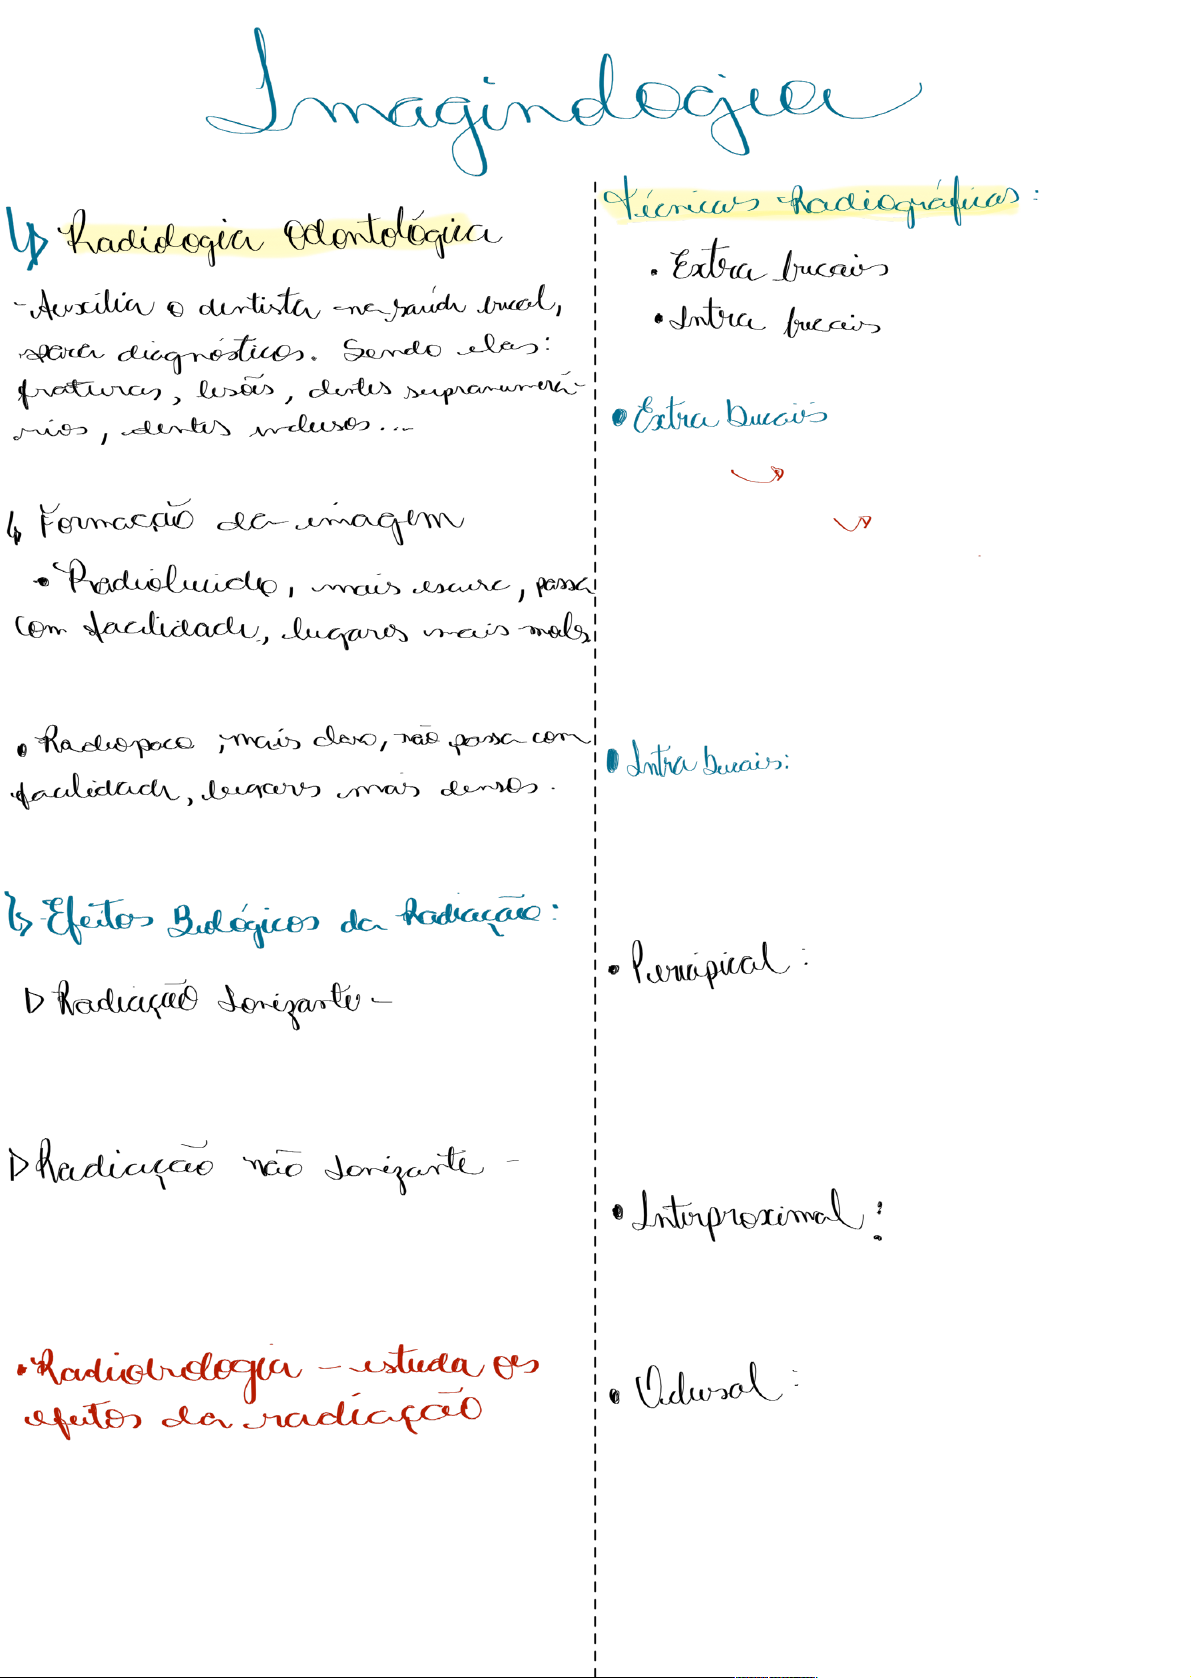 Imaginologia
↳ Radiologia Odontológica
- Auxilia o dentista na saúde bucal,
para diagnósticos. Sendo elas:
fraturas, lesões, dentes supranumerá-
rios, dentes inclusos...
↳ Formação da imagem
• Radiolucido, mais escuro, passa
com facilidade, lugares mais moles
• Radiopaco, mais claro, não passa com
facilidade, lugares mais densos.
↳ Efeitos Biológicos da Radiação:
▷ Radiação Ionizante -
▷ Radiação não Ionizante -
• Radiobiologia - estuda os
efeitos da radiação
Técnicas Radiográficas:
• Extra bucais
• Intra bucais
• Extra bucais
• Intra bucais:
• Periapical:
• Interproximal:
• Oclusal: